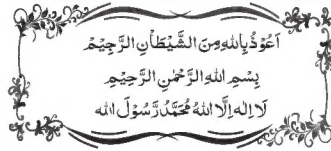 اَعُوْذُ بِاللّٰهِ مِنَ الشَّيْطٰانِ الرَّجِيْمِ
بِسْمِ اللهِ الرَّحْمٰنِ الرَّحِيْمِ
لَا اِلٰهَ اِلَّا اللهُ مُحَمَّدٌ رَّسُوْلَ الله